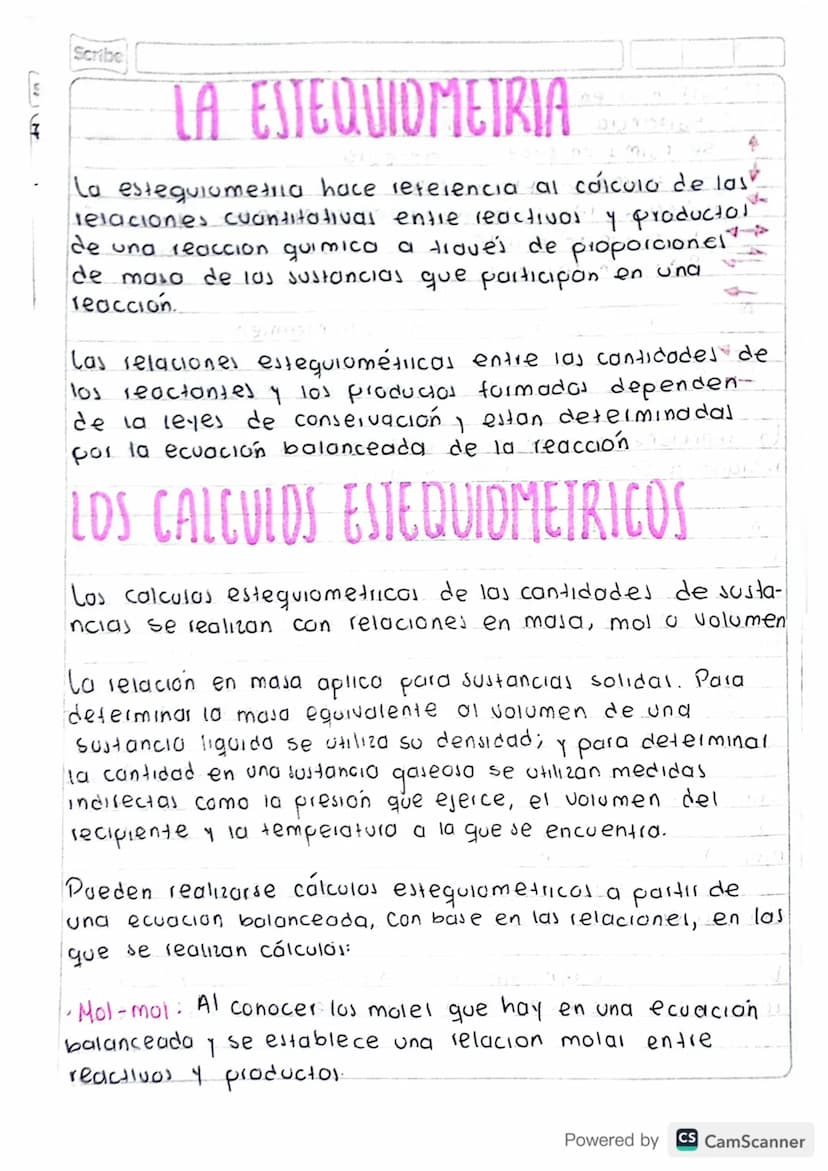 Scribe
LA ESTEQUIOMETRIA
La estequiometria hace referencia al cálculo de las
relaciones cuantitativas entre reactivos y productos
de una reaccion quimica a través de proporciones
de masa de las sustancias que participan en una
reacción.
Las relaciones estequiométricas entre las cantidades de
los reactantes y los productos formados dependen
de la leyes de conservación y estan determinadas
por la ecuación balanceada de la reacción
LOS CALCULOS ESTEQUIOMETRICOS
Los calculos estequiometricos de las cantidades de susta-
ncias se realizan con relaciones en masa, mol o volumen
La relación en masa aplica para sustancias solidas. Para
determinar la masa equivalente al volumen de una
sustancia liquida se utiliza su densidad; y para determinar
la cantidad en una sustancia gaseosa se utilizan medidas
indirectas como la presión que ejerce, el volumen del
recipiente y la temperatura a la que se encuentra.
Pueden realizarse cálculos estequiometricos a partir de
una ecuacion balanceada, con base en las relaciones, en las
que se realizan cálculos:
· Mol-mol: Al conocer los moles que hay en una ecuación
balanceada y se establece una relacion molar entre
reactivos y productos.
Powered by CS CamScanner